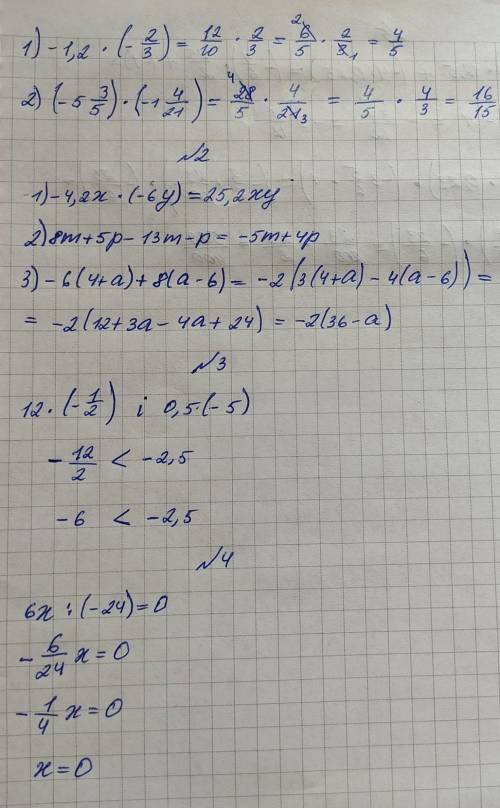 1) -1,2 · (-2/3) = 12/10 · 2/3 = 6/5 · 2/3 = 4/5
2) (-5 3/5) · (-1 4/21) = 28/5 · 4/21 = 4/5 · 4/3 = 16/15
№2
1) -4,2x · (-6y) = 25,2xy
2) 8m+5p-13m-p = -5m+4p
3) -6(4+a)+8(a-6) = -2(3(4+a)-4(a-6)) =
= -2(12+3a-4a+24) = -2(36-a)
№3
12 · (-1/2) і 0,5·(-5)
-12/2 < -2,5
-6 < -2,5
№4
6x : (-24) = 0
-6/24 x = 0
-1/4 x = 0
x = 0